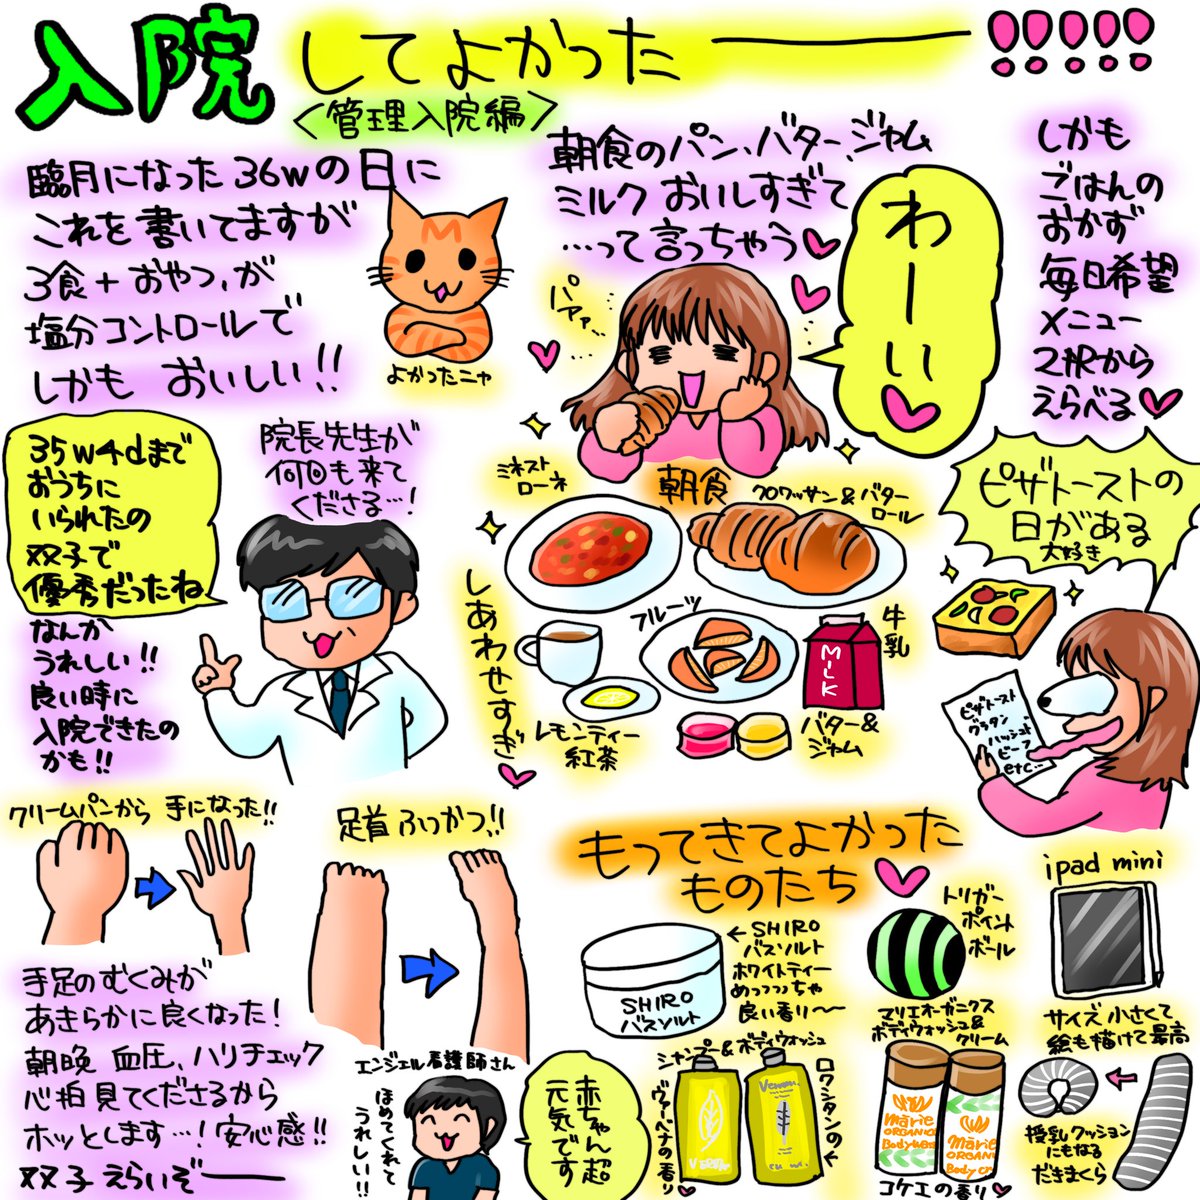 入院してよかったーーー!!!!!
〈管理入院編〉
臨月になった36wの日に
これを書いてますが
3食+おやつ、が
塩分コントロールで
しかも おいしい!!
よかったニャ
朝食のパン、バター、ジャム
ミルク おいしすぎて
…って言っちゃう♥
パアァ…
わーい♥
しかも
ごはんの
おかず
毎日希望
メニュー
2択から
えらべる♥
35w4dまで
おうちに
いられたの
双子で
優秀だったね
院長先生が
何回も来て
くださる…!
なんか
うれしい!!
良い時に
入院できたの
かも!!
朝食
ミネスト
ローネ
クロワッサン&バター
ロール
しあわせすぎ♥
フルーツ
牛乳
MILK
レモンティー
紅茶
バター&
ジャム
ピザトーストの
日がある
大好き
ピザトースト
グラタン
ハッシュド
ビーフ
etc…
クリームパンから 手になった!!
足首ふっかつ!!
手足のむくみが
あきらかに良くなった!
朝晩 血圧、ハリチェック
心拍見てくださるから
ホッとします…!安心感!!
双子えらいぞー
エンジェル看護師さん
ほめてくれて
うれしい!!
赤ちゃん超
元気です
もってきてよかった
ものたち♥
←SHIRO
バスソルト
ホワイトティー
めっっっっちゃ
良い香り〜
SHIRO
バスソルト
トリガー
ポイント
ボール
ipad mini
サイズ小さくて
絵も描けて最高
シャンプー&ボディウォッシュ
ロクシタンの
ヴァーベナの香り♥
マリエオーガニクス
ボディウォッシュ&
クリーム
märie
ORGANICS
Body
märie
ORGANI
Body cr
コケエの香り♥
授乳クッション
にもなる
だきまくら